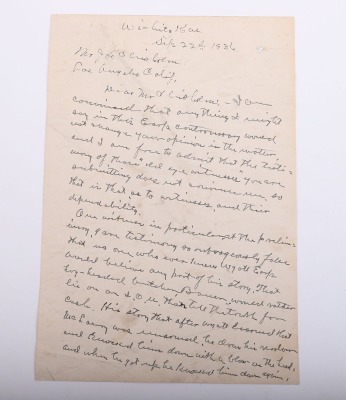 Wichita Kas
Sep 22th 1926
Mr Joe Chisholm
Los Angeles Calif,
Dear Mr Chisholm, - I am
convinced that anything I might
say in this Earp controversy would
not change your opinion in the matter
and I am free to admit that the testi-
mony of those "old eye witnesses" you are
submitting does not convince me, so
that is that as to witnesses, and their
dependability.
One witness in particular at the prelim-
inary, gave testimony so outrageously false
that no one who ever knew Wyatt Earp
would believe any part of his story, That
big-headed butcher Bauer, would rather
lie on an I.O.U. than tell the truth for
cash. His story that after Wyatt learned that
McLaury was unarmed he drew his revolver
and knocked him down with a blow on the head,
and when he got up he knocked him down again,